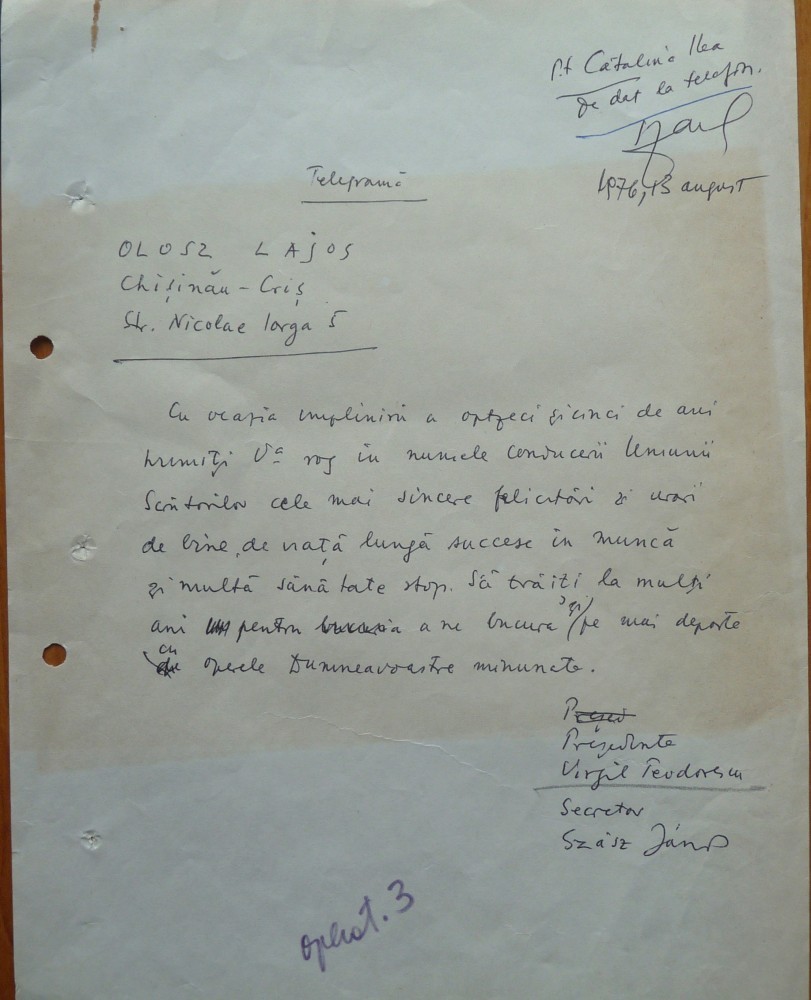 Pt Cătălina Ilea
de dat la telefon.
1976, 13 august
Telegramă
OLOSZ LAJOS
Chișinău - Criș
Str. Nicolae Iorga 5
Cu ocazia împlinirii a optzeci și cinci de ani
trimiți Vă rog în numele conducerii Uniunii
Scriitorilor cele mai sincere felicitări și urări
de bine, de viață lungă succese în muncă
și multă sănătate stop. Să trăiți la mulți
ani pentru a ne bucura și pe mai departe
cu operele Dumneavoastre minunate.
Președinte
Virgil Teodorescu
Secretar
Szász János
operat. 3